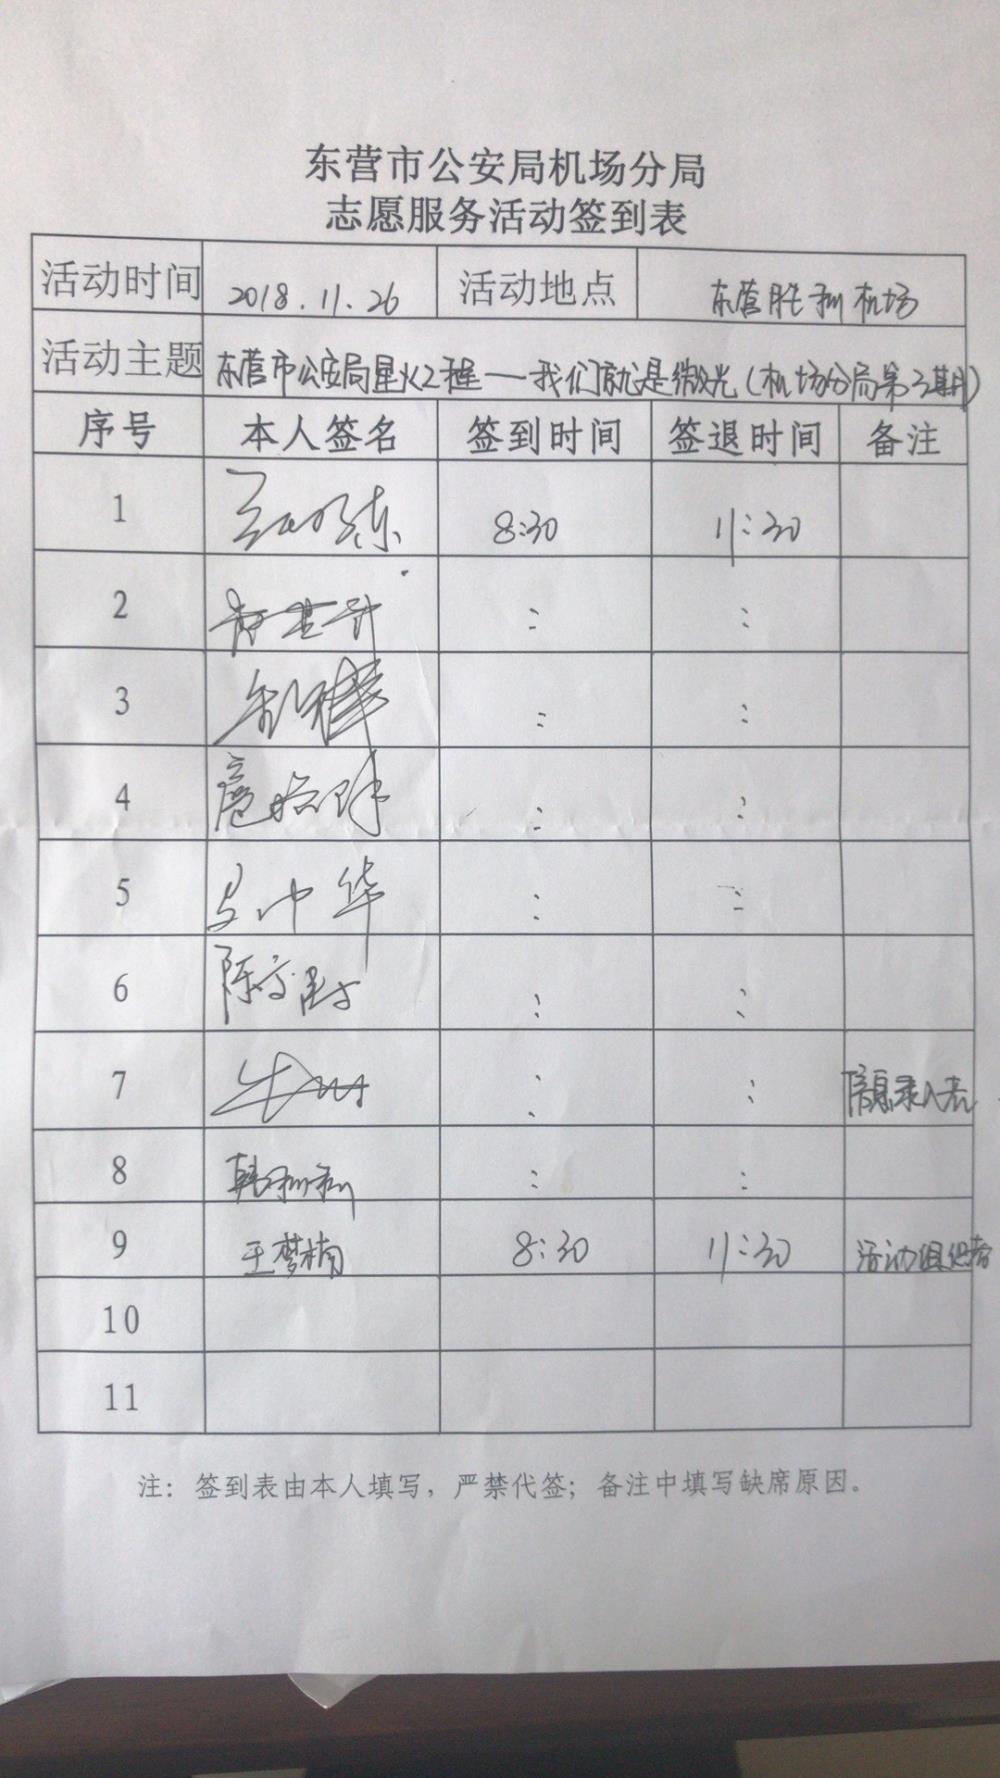 东营市公安局机场分局
志愿服务活动签到表
活动时间 2018.11.26 活动地点 东营胜利机场
活动主题 东营市公安局星火工程——我们就是微光(机场分局第3期)
序号 本人签名 签到时间 签退时间 备注
1 8:30 11:30
2 : :
3 : :
4 : :
5 马中华 : :
6 陈 : :
7 : : 信息录入者
8 韩利利 : :
9 王梦楠 8:30 11:30 活动组织者
10
11
注：签到表由本人填写，严禁代签；备注中填写缺席原因。